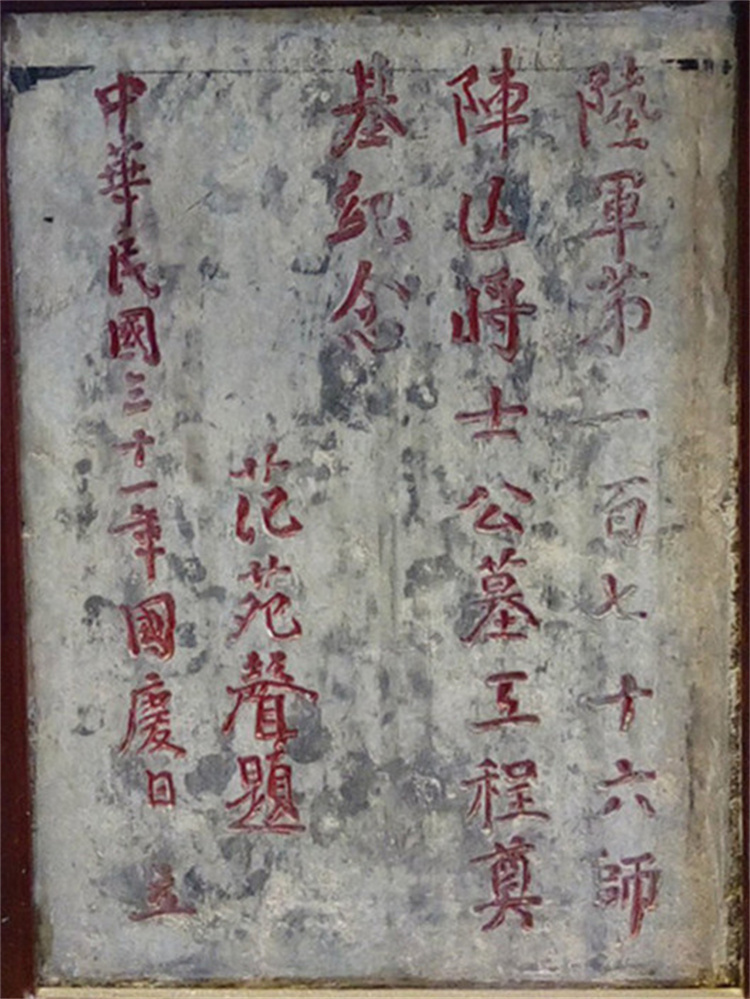 陸軍第一百七十六師
陣亡將士公墓工程奠
基紀念
范苑聲題
中華民國三十一年國慶日立